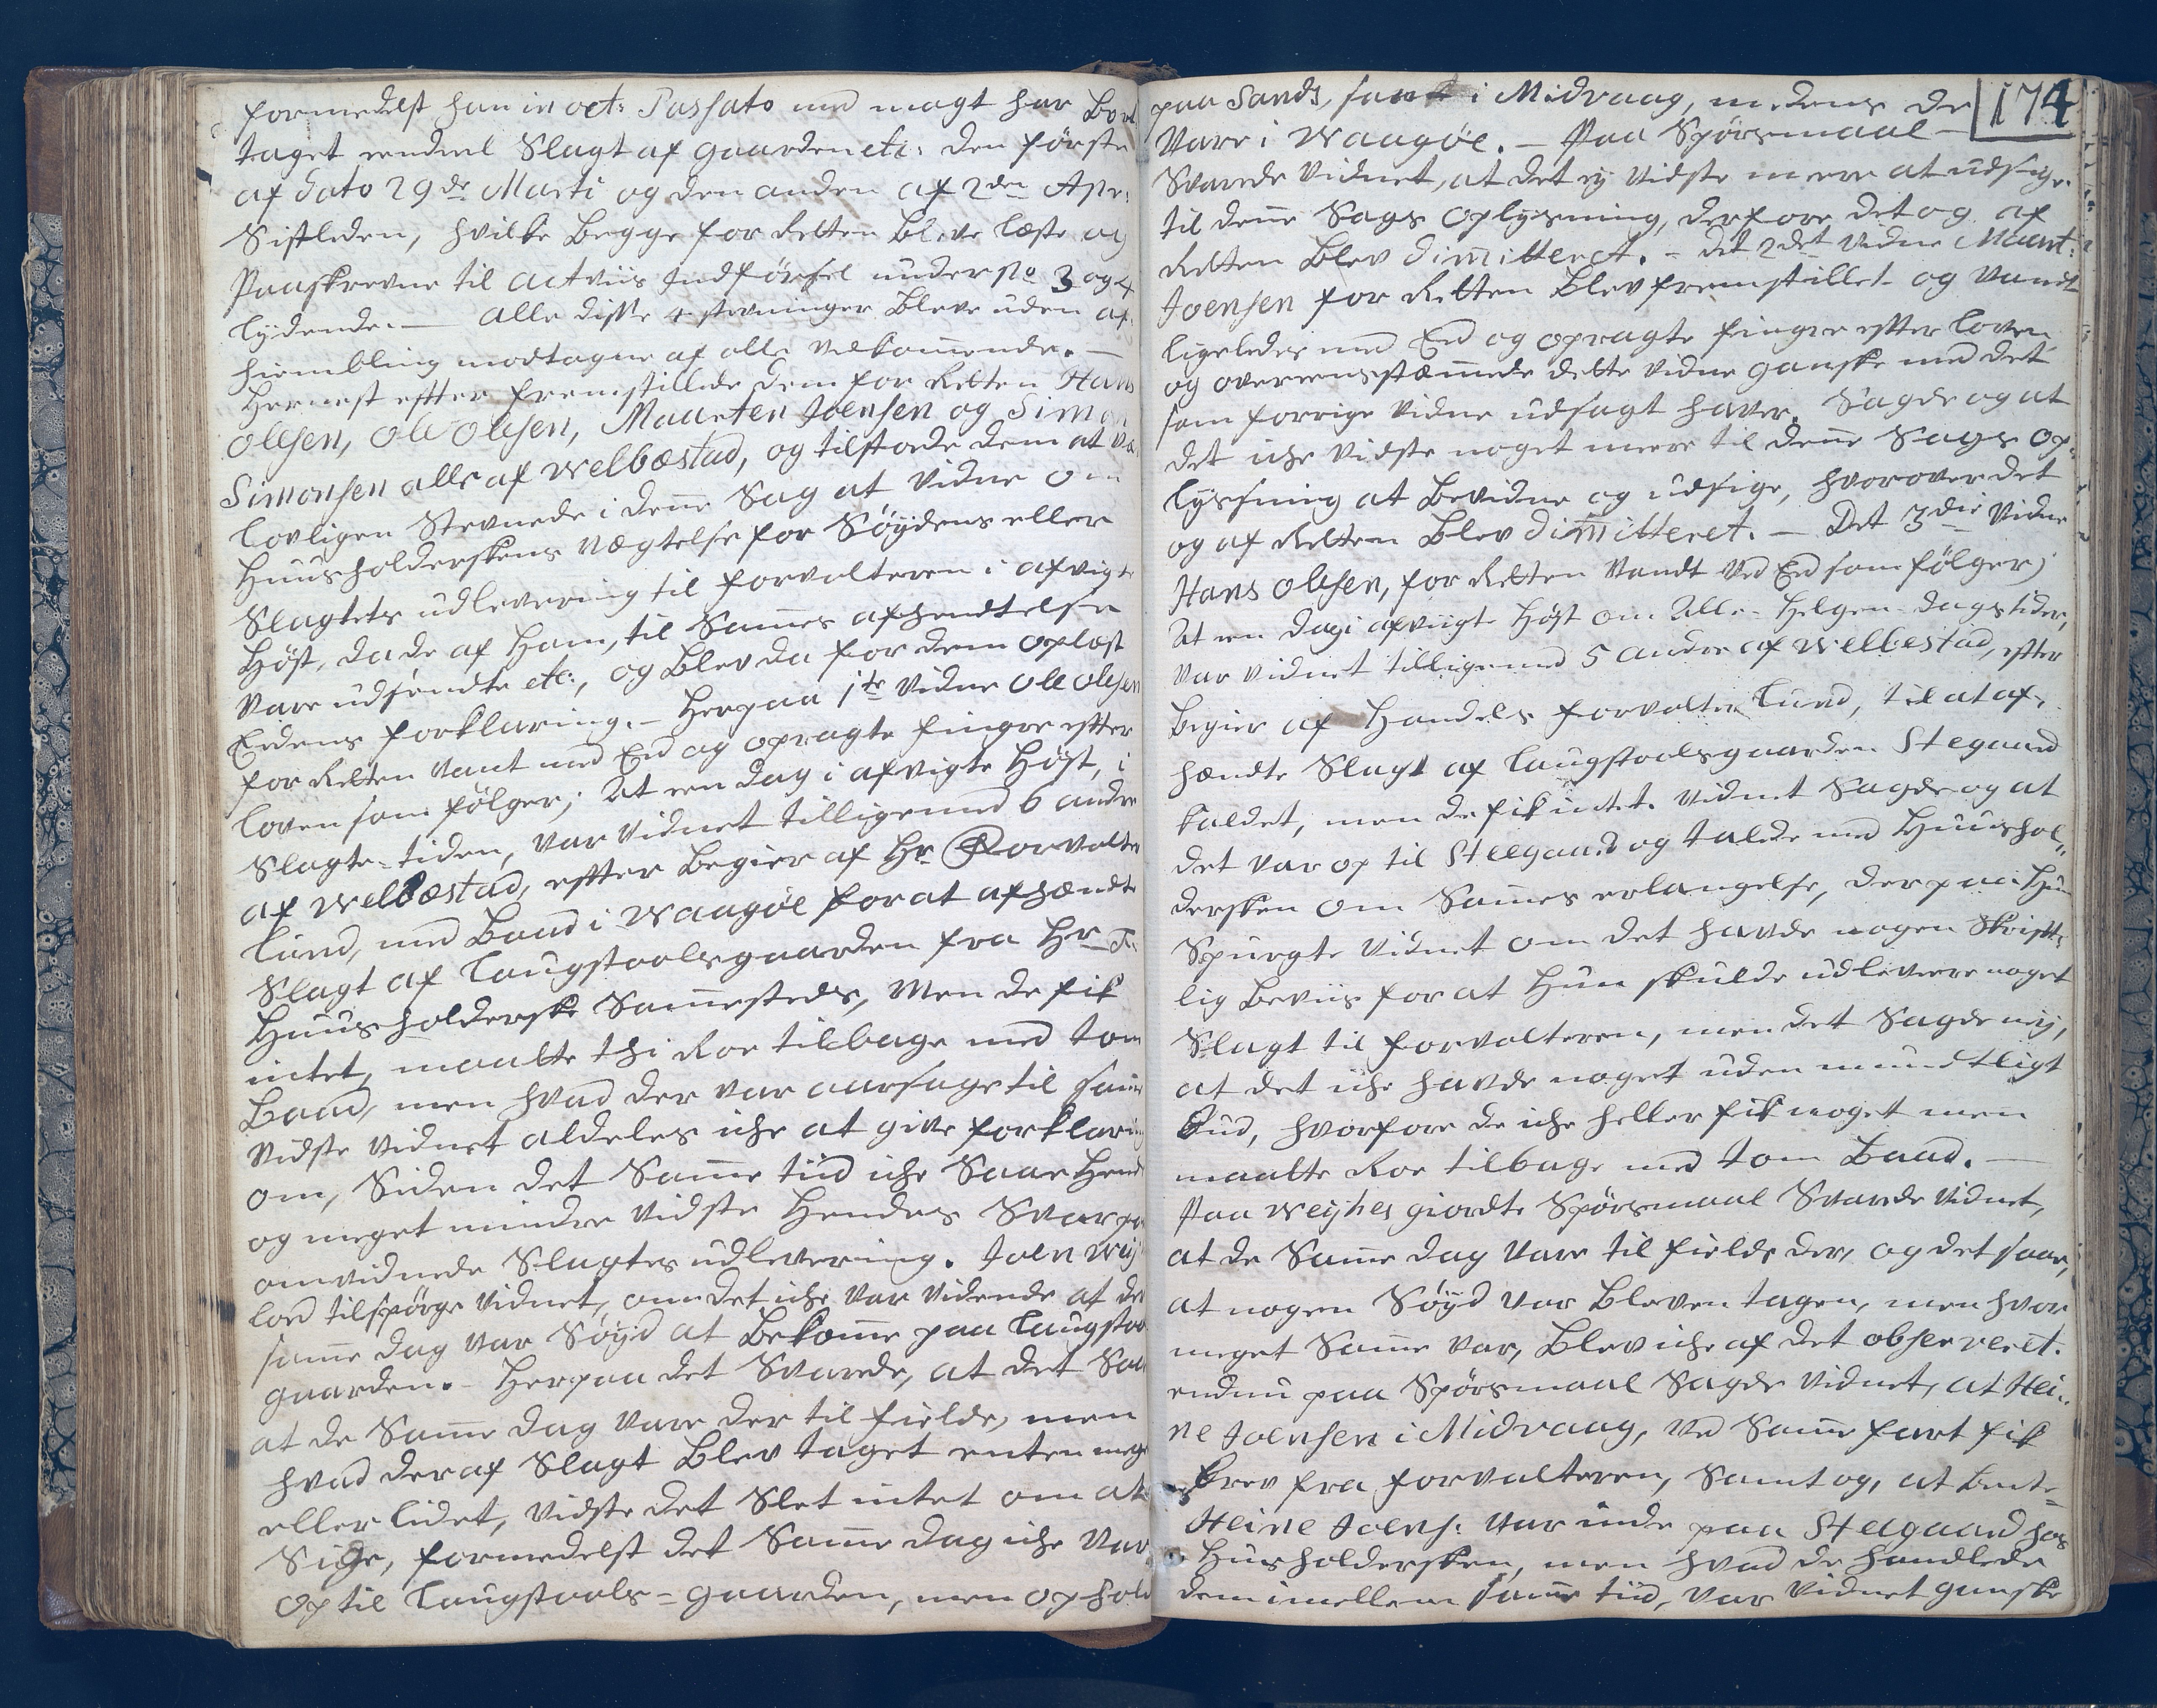 formedelst han in oct: Passato med magt har Bort
taget endeel Slagt af gaarden etc: den første
af dato 29de Marti og den anden af 2den Apr:
Sistleden, hvilke Begge for Retten bleve læste og
Paaskrevne til actviis Indførsel under No 3 og 4
lydende. — Alle disse 4 stevninger bleve uden af
hiembling modtagne af alle vedkommende. —
Hernest efter fremstillede dem for Retten Hans
Olesen, Ole Olesen, Maarten Joensen og Simon
Simonsen alle af Welbæstad, og tilstoede dem at være
lovligen Stevnede i denne Sag at vidne om
Huusholderskens nægtelse for Søydens eller
Slagtets udlevering til forvalteren i afvigte
Høst, da de af Ham, til Sammes afhendtelse
vare udsendte etc:, og blev da for dem oplæst
Eedens forklaring. — Herpaa 1te vidne Ole Olesen
for Retten vant med Eed og opragte fingre efter
loven som følger; At een dag i afvigte Høst, i
Slagte-tiden, var vidnet tilligemed 6 andre
af Welbæstad, efter begier af Hr Forvalter
Lund, med Baad i Waagøe for at afhændte
Slagt af Laugstoelsgaarden fra Hr
Huusholderske Sammesteds, Men de fik
intet, maatte thi Roe tilbage med tom
Baad, men hvad der var aarsage til samme
vidste vidnet aldeles iche at give forklaring
om, Siden det Samme tiid iche Saae Hende
og meget mindre vidste Hendes Svar paa
omvidnede Slagtes udlevering. Joen Weyhe
lod tilspørge vidnet, om det iche var vidende at der
samme dag var Søyd at bekomme paa Laugstoels
gaarden. — Herpaa det Svarede, at det Saae
at de Samme dag vare der til fields, men
hvad deraf Slagt blev taget enten meget
eller lidet, vidste det Slet intet om at
Sige, formedelst det Samme dag iche var
op til Laugstoels-gaarden, men ophold
174
paa Sand, samt i Midvaag, medens de
Vare i Waagøe. — Paa Spørsmaal —
Svarede vidnet, at det ey vidste mere at udsige
til denne Sags oplysning, derfore det og af
Retten blev dimitteret. — det 2det vidne Maart:
Joensen for Retten blev fremstillet og vandt
ligeledes med Eed og opragte fingre efter loven
og overeensstæmmede dette vidne ganske med det
som forrige vidne udsagt haver. Sagde og at
det iche vidste noget mere til denne Sags op
lysning at bevidne og udsige, hvorover det
og af Retten blev dimitteret. — Det 3die vidne
Hans Olesen, for Retten vandt ved Eed som følger;
At een dag i afvigte Høst om Alle-Helgen-dags tider,
var vidnet tilligemed 5 andre af Welbestad, efter
begier af Handels forvalter Lund, til at af-
hændte Slagt af Laugstoelsgaarden Stegaard
kaldet, men de fik intet. Vidnet Sagde og at
det var op til Steegaard og talede med Huushol-
dersken om Sammes erlangelse, der paa Hun
Spurgte vidnet om det havde nogen Skrift-
lig beviis for at Hun skulde udlevere noget
Slagt til forvalteren, men det Sagde ney,
at det iche havde noget uden mundtligt
bud, hvorfore de iche heller fik noget men
maatte Roe tilbage med tom Baad. —
Paa Weyhes giordte Spørsmaal Svarede vidnet,
at de Samme dag vare til fields der, og det saae,
at nogen Søyd var bleven tagen, men hvor
meget Samme var, blev iche af det observeret.
endnu paa Spørsmaal Sagde vidnet, at Hei-
ne Joensen i Midvaag, ved Samme fart fik
brev fra forvalteren, Samt og, at bemte
Heine Joens: var inde paa Steegaard hos
Huusholdersken, men hvad de handlede
dem imellem samme tiid, var vidnet ganske